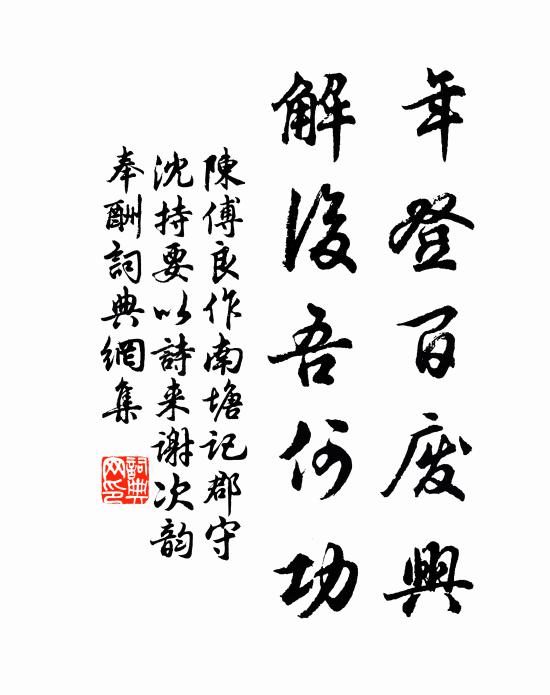 年登百废興
解後吾何功
陳傅良作南塘記郡守
沈持要以詩来謝次韵
奉酬詞典網集
詞典
网印